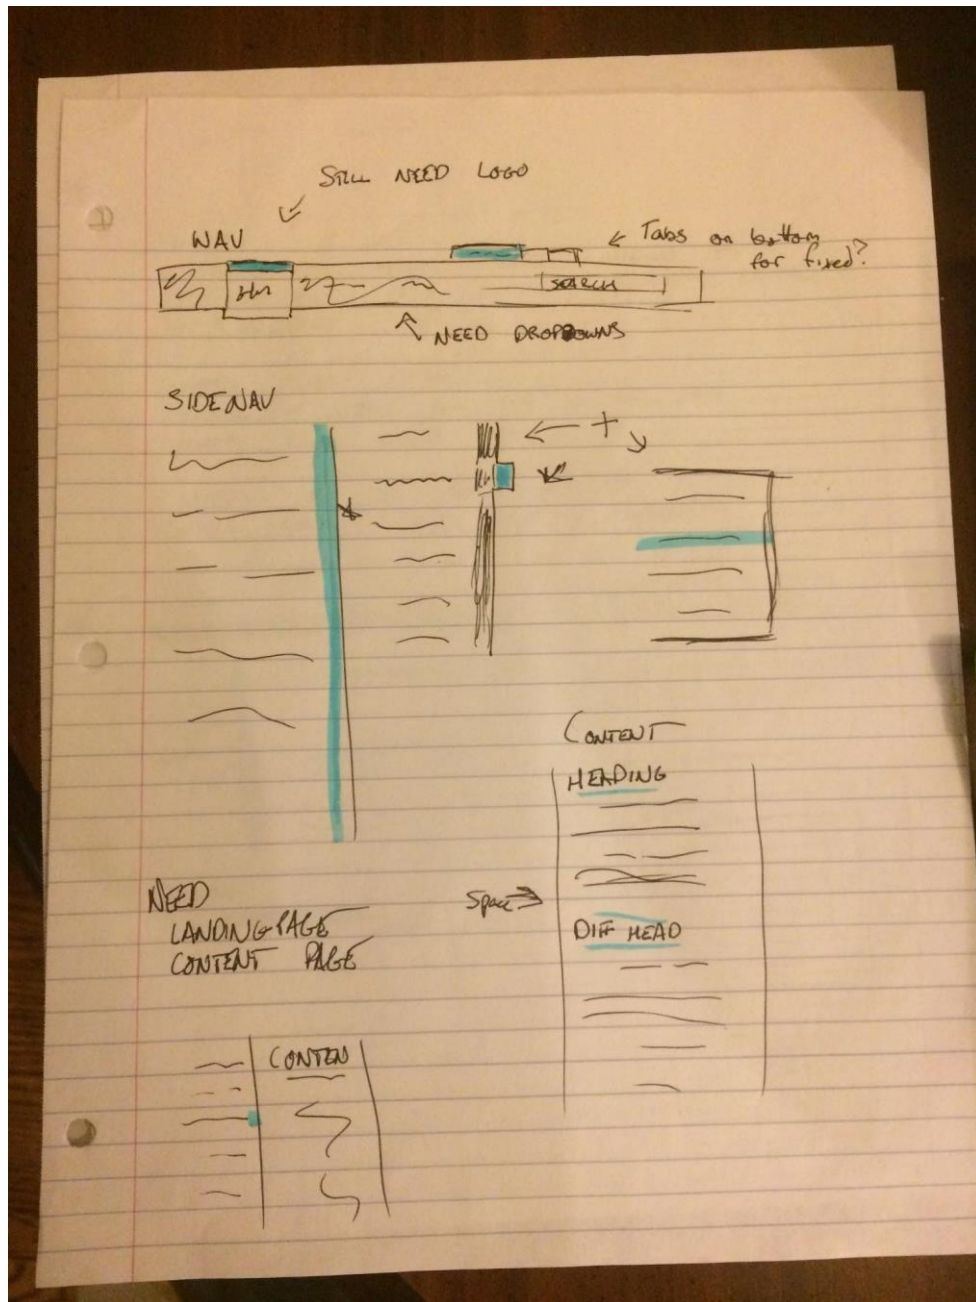 STILL NEED LOGO
NAV
Tabs on bottom
for fixed?
SEARCH
NEED DROPDOWNS
SIDENAV
+
CONTENT
HEADING
Space
DIFF HEAD
NEED
LANDING PAGE
CONTENT PAGE
CONTEN